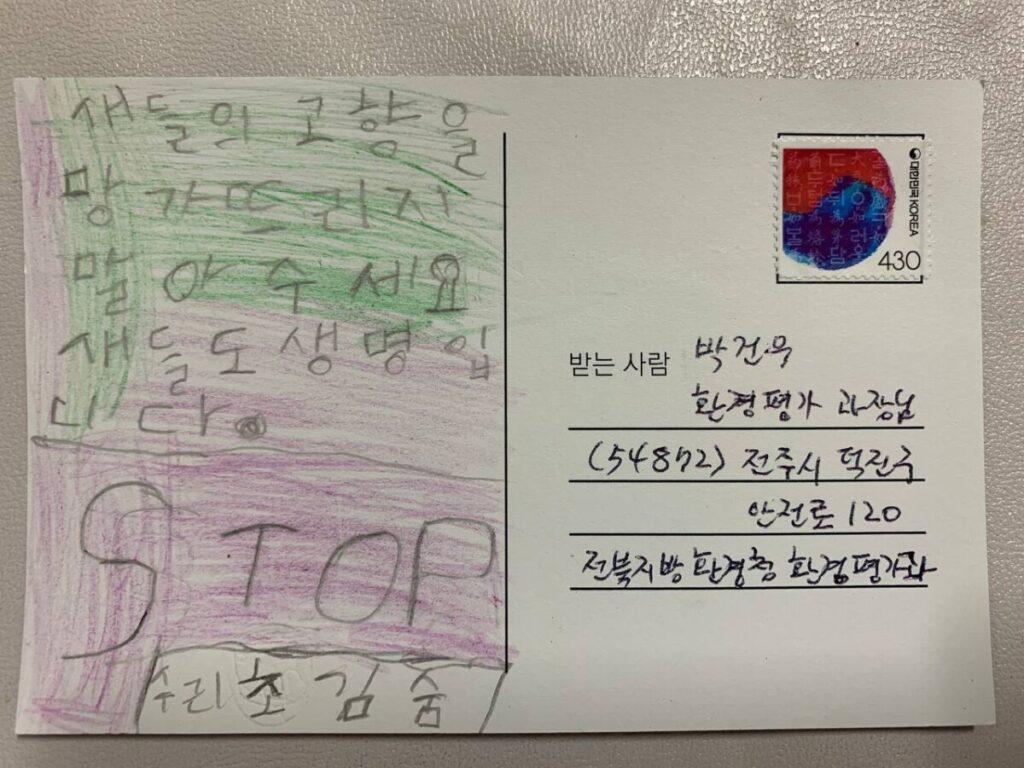 새들의 고향을
망가뜨리지
말아주세요
새들도 생명입
니다.
STOP
수리초 김숨
대한민국 KOREA
430
받는 사람 박건우
환경평가 과장님
(54872) 전주시 덕진구
안전로 120
전북지방환경청 환경평가과